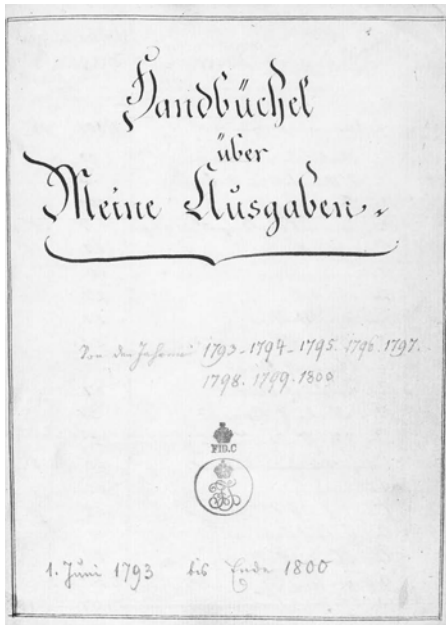 Handbüchel
über
Meine Ausgaben.
Von den Jahren 1793-1794-1795. 1796. 1797.
1798. 1799. 1800
FID.C
1. Juni 1793 bis Ende 1800